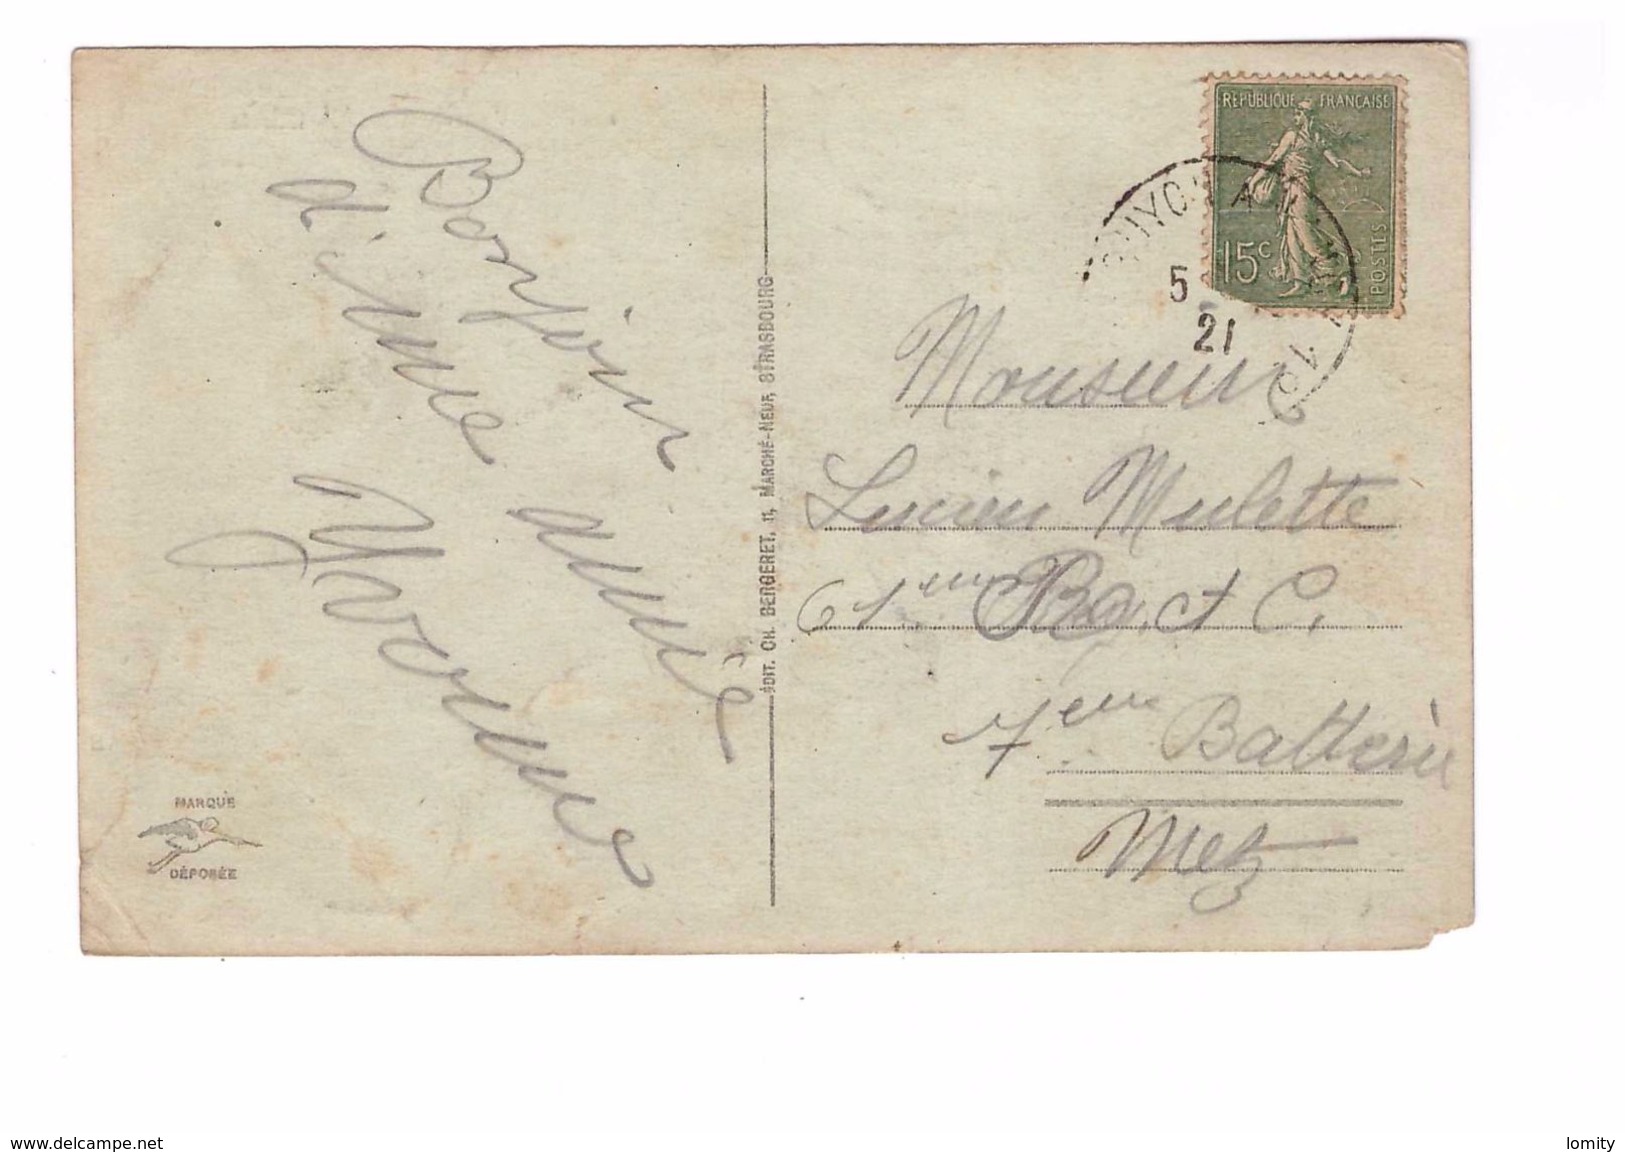 Bonjour
d'une amie
Yvonne
MARQUE
DÉPOSÉE
ÉDIT. CH. BERGERET, 11, MARCHÉ-NEUF, STRASBOURG
REPUBLIQUE FRANCAISE
15c
POSTES
5
21
Monsieur
Lucien Mulette
61eme R. et C.
7eme Batterie
Metz
www.delcampe.net
lomity